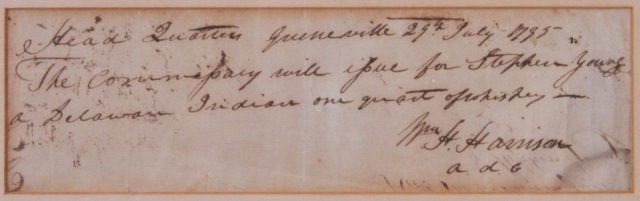 Head Quarters Greneville 29th July 1795
The Commissary will issue for Stephen Young
a Delawar Indian one quart of whiskey —
Wm H. Harrison
a d c